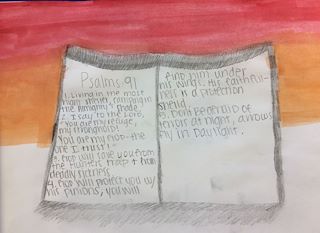 Psalms 91
1. Living in the most
high shelter, camping in
the Almighty's shade
2. I say to the Lord,
You are my refuge,
my stronghold!
You are my God- the
one I trust!
3. God will save you from
the hunters trap + from
deadly sickness
4. God will protect you w/
his pinions, you will
find him under
his wings. His faithfull-
ness is a protection
shield.
5. Don't be afraid of
terrors at night, arrows
fly in Daylight.